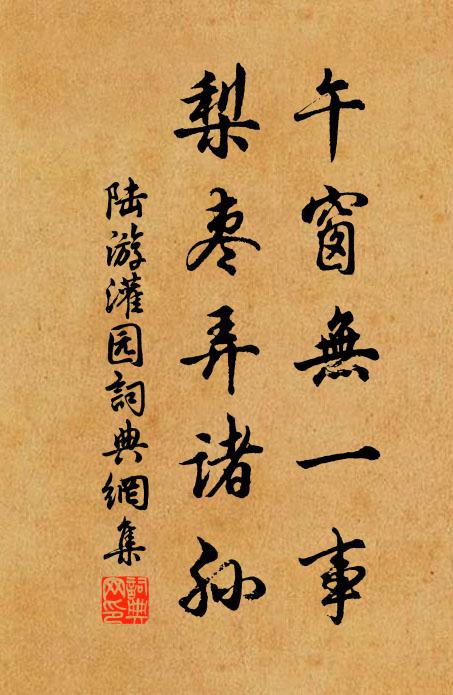 午窗無一事
梨枣弄诸孙
陆游灌园詞典網集
詞典网印